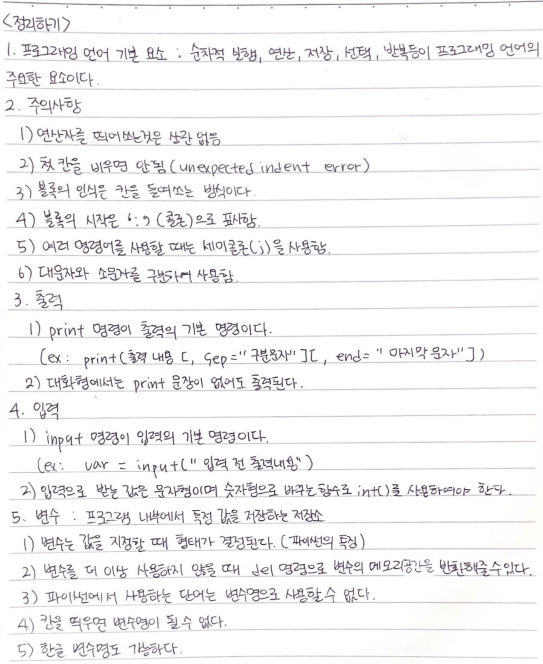 <정리하기>
1. 프로그래밍 언어 기본 요소 : 순차적 실행, 연산, 저장, 선택, 반복등이 프로그래밍 언어의
주요한 요소이다.
2. 주의사항
1) 연산자를 띄어쓰는것은 상관 없음
2) 첫 칸을 비우면 안됨 (unexpected indent error)
3) 블록의 인식은 칸을 들여쓰는 방식이다.
4) 블록의 시작은 ':' (콜론)으로 표시함.
5) 여러 명령어를 사용할 때는 세미콜론(;)을 사용함.
6) 대문자와 소문자를 구분하여 사용함.
3. 출력
1) print 명령이 출력의 기본 명령이다.
(ex: print(출력 내용 [, sep="구분문자"][, end="마지막 문자"])
2) 대화형에서는 print 문장이 없어도 출력된다.
4. 입력
1) input 명령이 입력의 기본 명령이다.
(ex: var = input("입력 전 출력내용")
2) 입력으로 받는 값은 문자형이며 숫자형으로 바꾸는 함수로 int()를 사용하여야 한다.
5. 변수 : 프로그램 내부에서 특정 값을 저장하는 저장소
1) 변수는 값을 지정할 때 형태가 결정된다. (파이썬의 특징)
2) 변수를 더 이상 사용하지 않을 때 del 명령으로 변수의 메모리공간을 반환해줄 수 있다.
3) 파이썬에서 사용하는 단어는 변수명으로 사용할 수 없다.
4) 칸을 띄우면 변수명이 될 수 없다.
5) 한글 변수명도 가능하다.